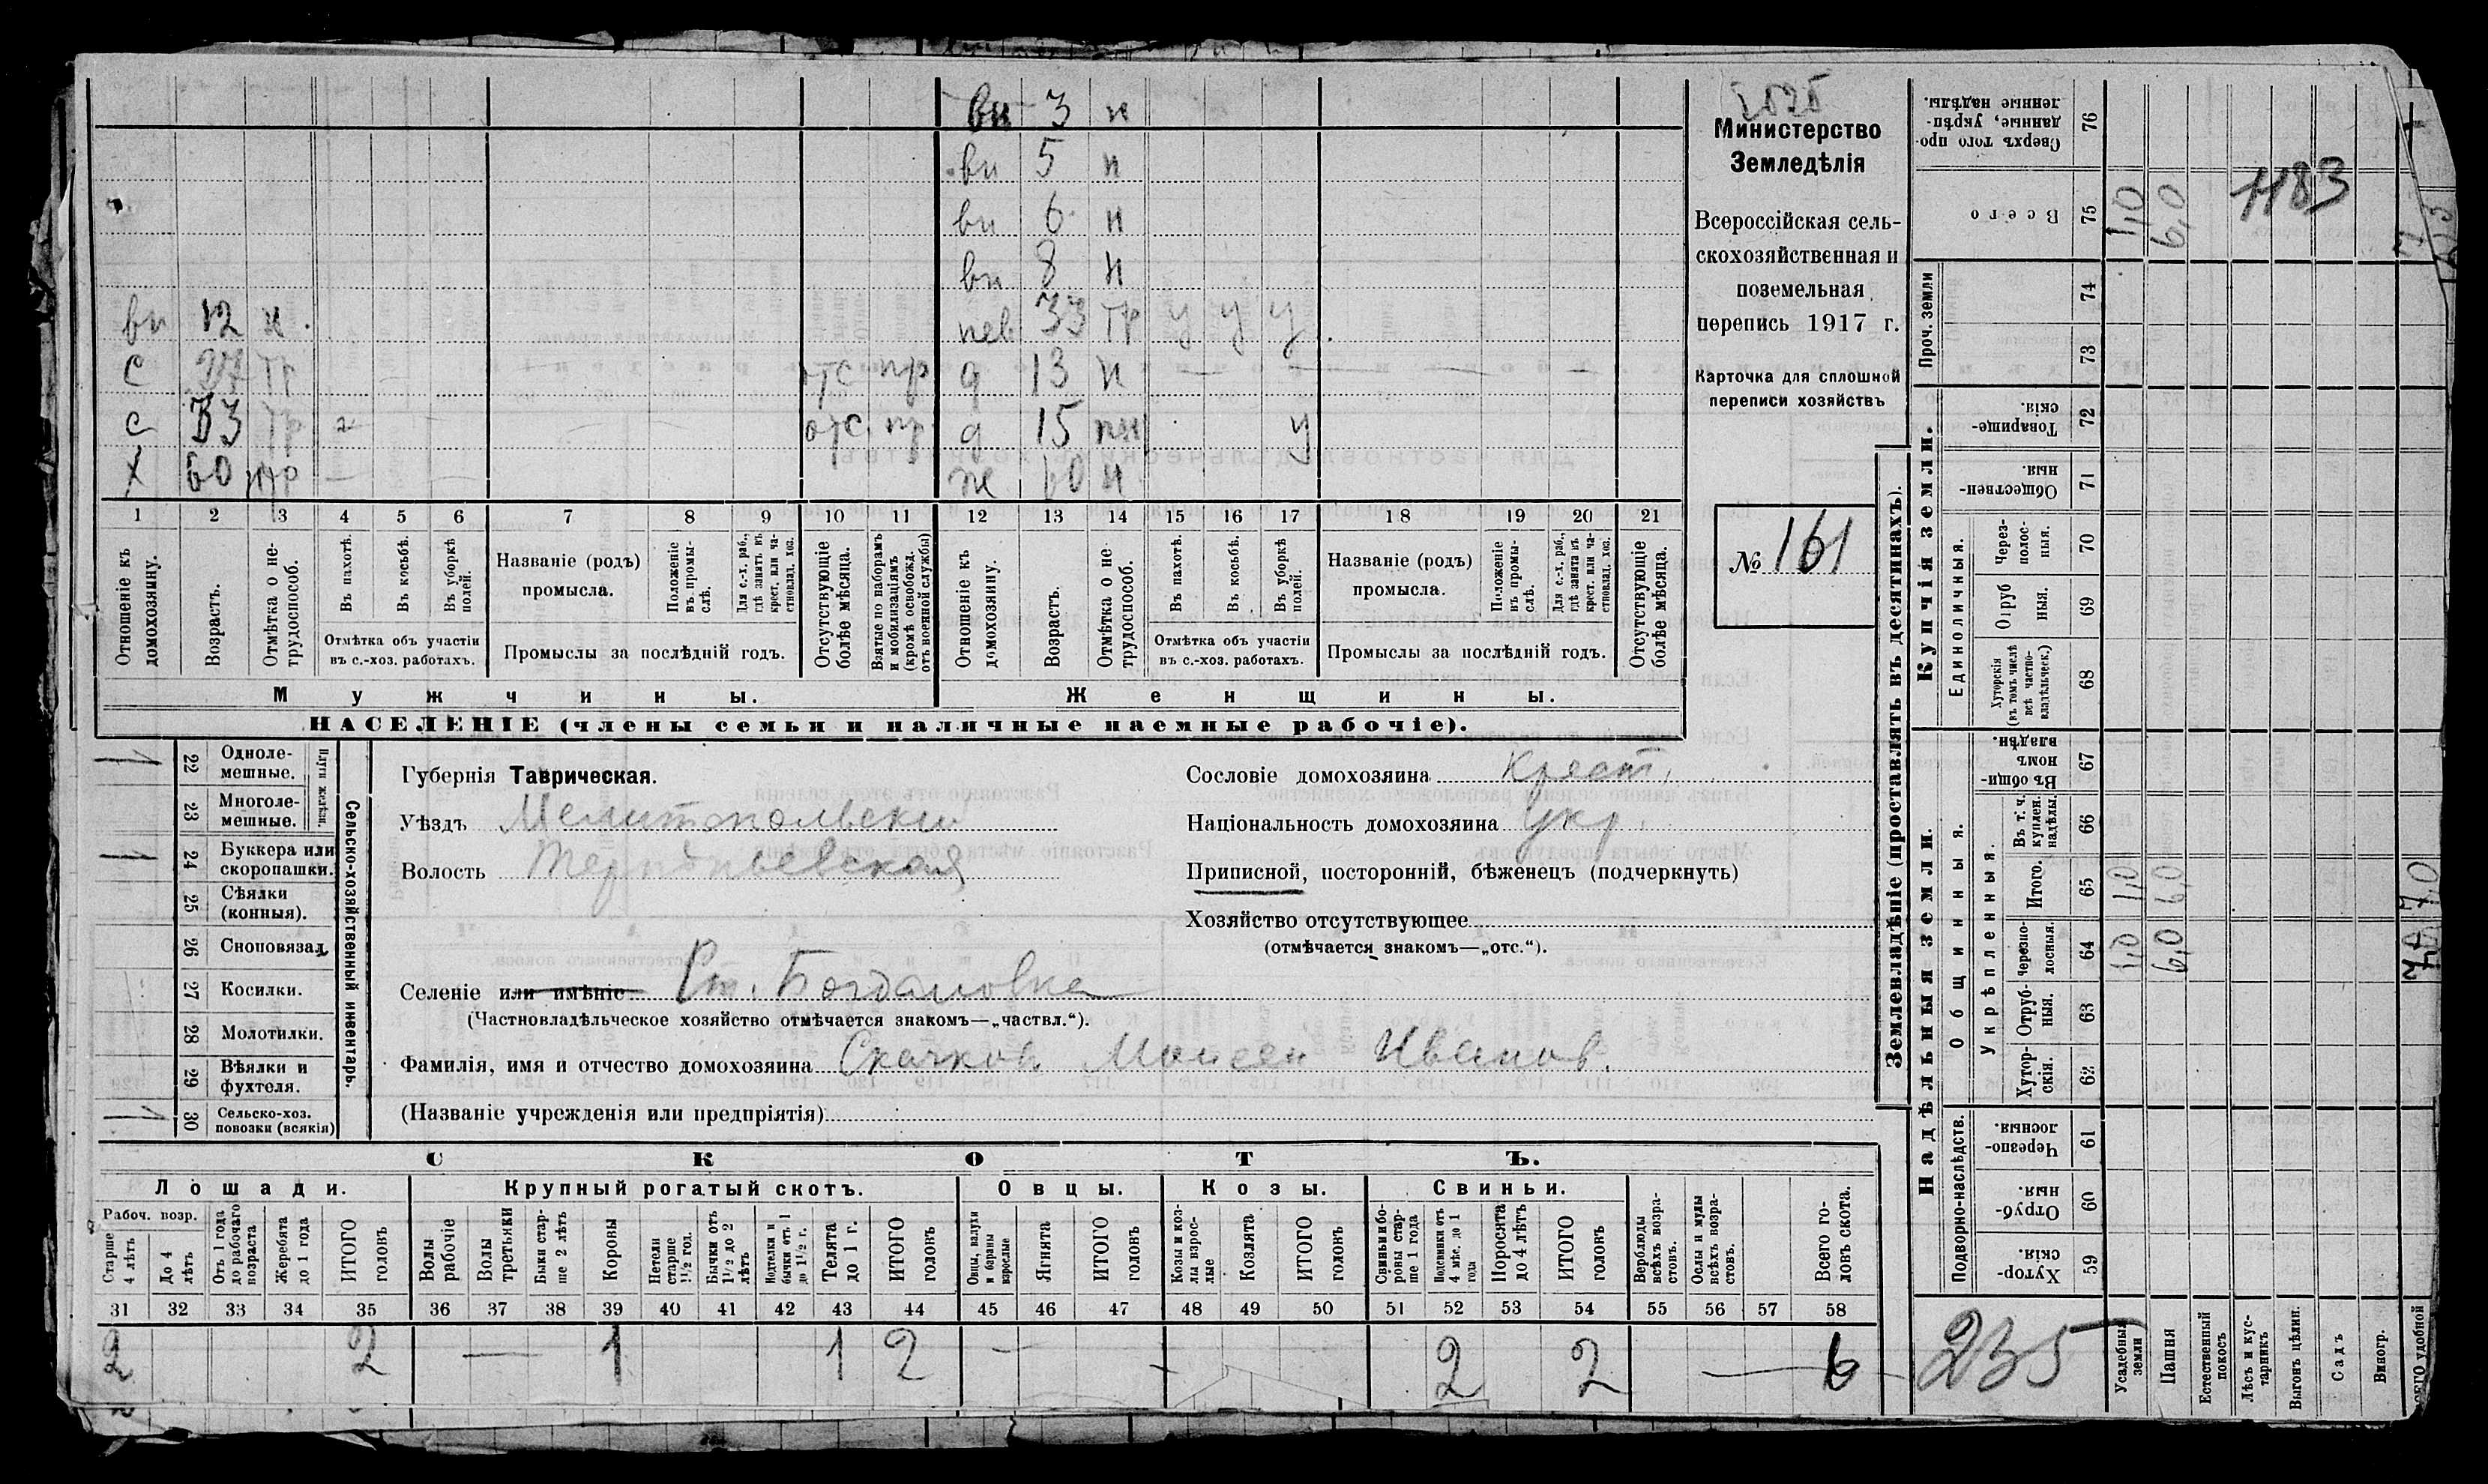 вн 3 н
Министерство
Земледѣлія
вн 5 н
Всероссійская сель-
скохозяйственная и
поземельная
перепись 1917 г.
вн 6 н
вн 8 н
вн 12 н. нев 33 тр у у у
Карточка для сплошной
переписи хозяйствъ
с 27 тр отс пр д 13 н
с 33 тр отс. пр. д 15 пн у
х 60 ж 60 н
1 2 3 4 5 6 7 8 9 10 11 12 13 14 15 16 17 18 19 20 21
Отношеніе къ домохозяину.
Возрастъ.
Отмѣтка о не-трудоспособ.
Въ пахотѣ.
Въ косьбѣ.
Въ уборкѣ полей.
Отмѣтка объ участіи
въ с.-хоз. работахъ.
Названіе (родъ)
промысла.
Положеніе въ промы-слѣ.
Для с.-х. раб., гдѣ занятъ въ крест. или ча-стновлад. хоз.
Промыслы за послѣдній годъ.
Отсутствующіе болѣе мѣсяца.
Взятые по наборамъ и мобилизаціямъ (кромѣ освобожд. отъ военной службы)
Отношеніе къ домохозяину.
Возрастъ.
Отмѣтка о не-трудоспособ.
Въ пахотѣ.
Въ косьбѣ.
Въ уборкѣ полей.
Отмѣтка объ участіи
въ с.-хоз. работахъ.
Названіе (родъ)
промысла.
Положеніе въ промы-слѣ.
Для с.-х. раб., гдѣ занята въ крест. или ча-стновлад. хоз.
Промыслы за послѣдній годъ.
Отсутствующіе болѣе мѣсяца.
№ 161
Мужчины.
Женщины.
НАСЕЛЕНІЕ (члены семьи и наличные наемные рабочіе).
22 Одноле-мешные.
23 Многоле-мешные.
Плуги желѣзн.
24 Буккера или скоропашки.
25 Сѣялки (конныя).
26 Сноповязал.
27 Косилки.
28 Молотилки.
29 Вѣялки и фухтеля.
30 Сельско-хоз. повозки (всякія)
Сельско-хозяйственный инвентарь.
Губернія Таврическая.
Уѣздъ Мелитопольскій
Волость Терпѣньевская
Сословіе домохозяина Крест.
Національность домохозяина Укр.
Приписной, посторонній, бѣженецъ (подчеркнуть)
Хозяйство отсутствующее
(отмѣчается знакомъ—„отс.“).
Селеніе или имѣніе Ст. Богдановка
(Частновладѣльческое хозяйство отмѣчается знакомъ—„частвл.“).
Фамилія, имя и отчество домохозяина Скачков Моисей Иванов.
(Названіе учрежденія или предпріятія)
СКОТЪ.
Лошади. Крупный рогатый скотъ. Овцы. Козы. Свиньи.
Рабоч. возр.
Старше 4 лѣтъ
До 4 лѣтъ
Отъ 1 года до рабочаго возраста
Жеребята до 1 года
ИТОГО головъ
Волы рабочіе
Волы третьяки
Быки стар-ше 2 лѣтъ
Коровы
Нетели старше 1½ год.
Бычки отъ 1½ до 2 лѣтъ
Подтелки и бычки отъ 1 до 1½ г.
Телята до 1 г.
ИТОГО головъ
Овцы, валухи и бараны взрослые
Ягнята
ИТОГО головъ
Козы и коз-лы взрос-лые
Козлята
ИТОГО головъ
Свиньи и бо-ровы стар-ше 1 года
Подсвинки отъ 4 мѣс. до 1 года
Поросята до 4 лѣтъ
ИТОГО головъ
Верблюды всѣхъ возра-стовъ.
Ослы и мулы всѣхъ возра-стовъ.
Всего го-ловъ скота.
31 32 33 34 35 36 37 38 39 40 41 42 43 44 45 46 47 48 49 50 51 52 53 54 55 56 57 58
2 2 — 1 1 2 — 2 2 — 6
Землевладѣніе (проставлять въ десятинахъ).
Купчія земли.
Надѣльныя земли.
Сверхъ того про-данные, укрѣп-ленные надѣлы. 76
Всего 75 1,0 6,0 1183
Проч. земли 74 73
Товарище-скія. 72
Обществен-ныя. 71
Единоличныя.
Через-полос-ныя. 70
Отруб ныя. 69
Хуторскія (въ томъ числѣ всѣ частно-владѣльческ.) 68
Въ общи-номъ владѣн. 67
Общинныя.
Укрѣпленныя.
Въ т. ч. куплен. надѣлы. 66
Итого. 65 1,0 6,0 7,0
Черезпо-лосныя. 64 1,0 6,0 7,0
Отруб-ныя. 63
Хутор-скія. 62
Подворно-наслѣдств.
Черезпо-лосныя. 61
Отруб-ныя. 60
Хутор-скія. 59
235
Усадебныя земли
Пашня
Естественный покосъ
Лѣсъ и кус-тарникъ
Выгонъ цѣлин.
Садъ
Виногр.
удобной